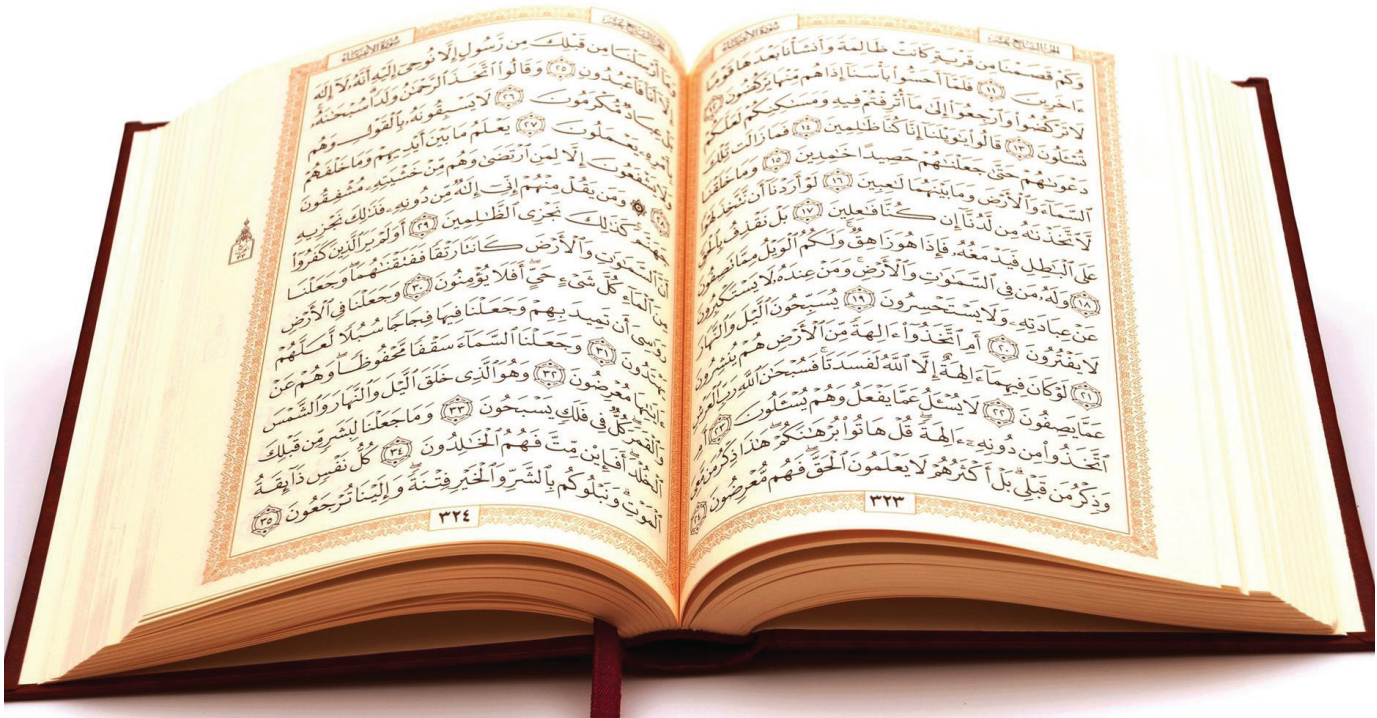 الجُزْءُ السَّابِعَ عَشَرَ
سُورَةُ الأَنبِيَاءِ
وَكَمْ قَصَمْنَا مِن قَرْيَةٍ كَانَتْ ظَالِمَةً وَأَنشَأْنَا بَعْدَهَا قَوْمًا
ءَاخَرِينَ ١١ فَلَمَّآ أَحَسُّوا۟ بَأْسَنَآ إِذَا هُم مِّنْهَا يَرْكُضُونَ ١٢
لَا تَرْكُضُوا۟ وَٱرْجِعُوٓا۟ إِلَىٰ مَآ أُتْرِفْتُمْ فِيهِ وَمَسَٰكِنِكُمْ لَعَلَّكُمْ
تُسْـَٔلُونَ ١٣ قَالُوا۟ يَٰوَيْلَنَآ إِنَّا كُنَّا ظَٰلِمِينَ ١٤ فَمَا زَالَت تِّلْكَ
دَعْوَىٰهُمْ حَتَّىٰ جَعَلْنَٰهُمْ حَصِيدًا خَٰمِدِينَ ١٥ وَمَا خَلَقْنَا
ٱلسَّمَآءَ وَٱلْأَرْضَ وَمَا بَيْنَهُمَا لَٰعِبِينَ ١٦ لَوْ أَرَدْنَآ أَن نَّتَّخِذَ لَهْوًا
لَّٱتَّخَذْنَٰهُ مِن لَّدُنَّآ إِن كُنَّا فَٰعِلِينَ ١٧ بَلْ نَقْذِفُ بِٱلْحَقِّ
عَلَى ٱلْبَٰطِلِ فَيَدْمَغُهُۥ فَإِذَا هُوَ زَاهِقٌ ۚ وَلَكُمُ ٱلْوَيْلُ مِمَّا تَصِفُونَ
١٨ وَلَهُۥ مَن فِى ٱلسَّمَٰوَٰتِ وَٱلْأَرْضِ ۚ وَمَنْ عِندَهُۥ لَا يَسْتَكْبِرُونَ
عَنْ عِبَادَتِهِۦ وَلَا يَسْتَحْسِرُونَ ١٩ يُسَبِّحُونَ ٱلَّيْلَ وَٱلنَّهَارَ
لَا يَفْتُرُونَ ٢٠ أَمِ ٱتَّخَذُوٓا۟ ءَالِهَةً مِّنَ ٱلْأَرْضِ هُمْ يُنشِرُونَ
٢١ لَوْ كَانَ فِيهِمَآ ءَالِهَةٌ إِلَّا ٱللَّهُ لَفَسَدَتَا ۚ فَسُبْحَٰنَ ٱللَّهِ رَبِّ ٱلْعَرْشِ
عَمَّا يَصِفُونَ ٢٢ لَا يُسْـَٔلُ عَمَّا يَفْعَلُ وَهُمْ يُسْـَٔلُونَ ٢٣ أَمِ
ٱتَّخَذُوا۟ مِن دُونِهِۦٓ ءَالِهَةً ۖ قُلْ هَاتُوا۟ بُرْهَٰنَكُمْ ۖ هَٰذَا ذِكْرُ مَن مَّعِىَ
وَذِكْرُ مَن قَبْلِى ۗ بَلْ أَكْثَرُهُمْ لَا يَعْلَمُونَ ٱلْحَقَّ ۖ فَهُم مُّعْرِضُونَ ٢٤
٣٢٣
الجُزْءُ السَّابِعَ عَشَرَ
سُورَةُ الأَنبِيَاءِ
وَمَآ أَرْسَلْنَا مِن قَبْلِكَ مِن رَّسُولٍ إِلَّا نُوحِىٓ إِلَيْهِ أَنَّهُۥ لَآ إِلَٰهَ
إِلَّآ أَنَا۠ فَٱعْبُدُونِ ٢٥ وَقَالُوا۟ ٱتَّخَذَ ٱلرَّحْمَٰنُ وَلَدًا ۗ سُبْحَٰنَهُۥ ۚ
بَلْ عِبَادٌ مُّكْرَمُونَ ٢٦ لَا يَسْبِقُونَهُۥ بِٱلْقَوْلِ وَهُم
بِأَمْرِهِۦ يَعْمَلُونَ ٢٧ يَعْلَمُ مَا بَيْنَ أَيْدِيهِمْ وَمَا خَلْفَهُمْ
وَلَا يَشْفَعُونَ إِلَّا لِمَنِ ٱرْتَضَىٰ وَهُم مِّنْ خَشْيَتِهِۦ مُشْفِقُونَ
٢٨ ۞ وَمَن يَقُلْ مِنْهُمْ إِنِّىٓ إِلَٰهٌ مِّن دُونِهِۦ فَذَٰلِكَ نَجْزِيهِ
جَهَنَّمَ ۚ كَذَٰلِكَ نَجْزِى ٱلظَّٰلِمِينَ ٢٩ أَوَلَمْ يَرَ ٱلَّذِينَ كَفَرُوٓا۟
أَنَّ ٱلسَّمَٰوَٰتِ وَٱلْأَرْضَ كَانَتَا رَتْقًا فَفَتَقْنَٰهُمَا ۖ وَجَعَلْنَا
مِنَ ٱلْمَآءِ كُلَّ شَىْءٍ حَىٍّ ۖ أَفَلَا يُؤْمِنُونَ ٣٠ وَجَعَلْنَا فِى ٱلْأَرْضِ
رَوَٰسِىَ أَن تَمِيدَ بِهِمْ وَجَعَلْنَا فِيهَا فِجَاجًا سُبُلًا لَّعَلَّهُمْ
يَهْتَدُونَ ٣١ وَجَعَلْنَا ٱلسَّمَآءَ سَقْفًا مَّحْفُوظًا ۖ وَهُمْ عَنْ
ءَايَٰتِهَا مُعْرِضُونَ ٣٢ وَهُوَ ٱلَّذِى خَلَقَ ٱلَّيْلَ وَٱلنَّهَارَ وَٱلشَّمْسَ
وَٱلْقَمَرَ ۖ كُلٌّ فِى فَلَكٍ يَسْبَحُونَ ٣٣ وَمَا جَعَلْنَا لِبَشَرٍ مِّن قَبْلِكَ
ٱلْخُلْدَ ۖ أَفَإِي۟ن مِّتَّ فَهُمُ ٱلْخَٰلِدُونَ ٣٤ كُلُّ نَفْسٍ ذَآئِقَةُ
ٱلْمَوْتِ ۗ وَنَبْلُوكُم بِٱلشَّرِّ وَٱلْخَيْرِ فِتْنَةً ۖ وَإِلَيْنَا تُرْجَعُونَ ٣٥
٣٢٤